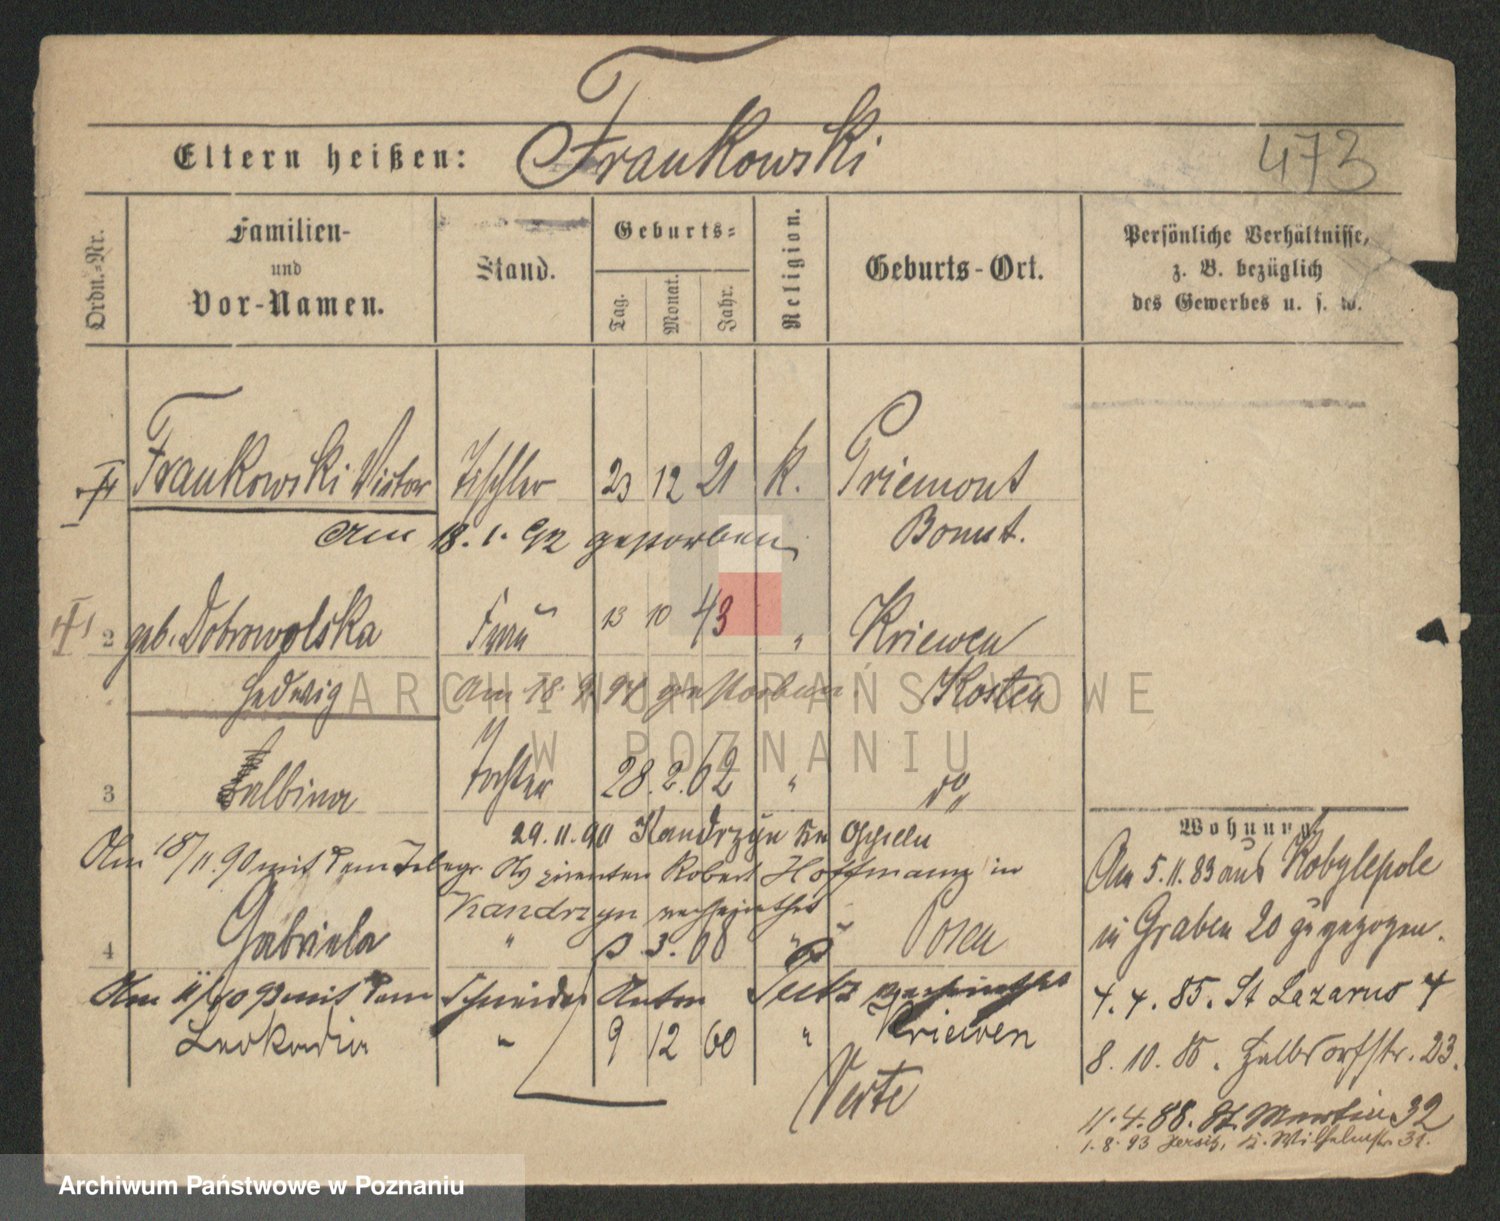 Eltern heißen: Frankowski
473
Ordn.-Nr.
Familien-
und
Vor-Namen.
Stand.
Geburts-
Tag.
Monat.
Jahr.
Religion.
Geburts-Ort.
Persönliche Verhältnisse,
z. B. bezüglich
des Gewerbes u. s. w.
Frankowski Victor Tischler 23 12 21 K. Priemont
Am 18.1.92 gestorben Bomst.
2 geb. Dobrowolska Frau 13 10 43 " Kriewen
Hedwig Am 18. 94 gestorben. Kosten
3 Balbina Tochter 28.2.62 " do
29.11.90 Kandrzyn
Am 18/11.90 mit dem Robert Hoffmann in
Kandrzyn verheirathet
4 Gabriela " 3.68 " Posen
Am 11/10 93 mit dem Schneider Anton verheirathet
Leokadia " 9 12 60 " Kriewen
Verte
Wohnung.
Am 5.11.83 aus Kobylepole
in Graben 20 zugezogen.
4.4.85. St Lazarus 4
8.10.85. Halbdorfstr. 23.
11.4.88. St. Martin 32
1.8.93 Jersitz, Wilhelmstr. 31.
ARCHIWUM PAŃSTWOWE
W POZNANIU
Archiwum Państwowe w Poznaniu